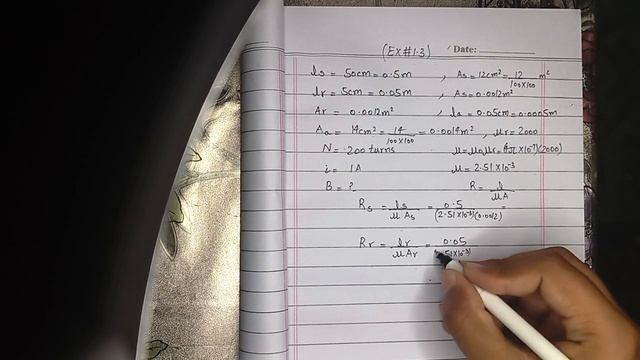 (EX#1.3) Date:
ls = 50cm = 0.5m , As = 12cm² = 12/100x100 m²
lr = 5cm = 0.05m , As = 0.0012m²
Ar = 0.0012m² , la = 0.05cm = 0.0005m
Aa = 14cm² = 14/100x100 = 0.0014m² , μr = 2000
N = 200 turns μ = μ0μr = (4π x10⁻⁷)(2000)
i = 1A μ = 2.51 x10⁻³
B = ? R = l/μA
Rs = ls/μAs = 0.5/(2.51x10⁻³)(0.0012) =
Rr = lr/μAr = 0.05/.51x10⁻³)